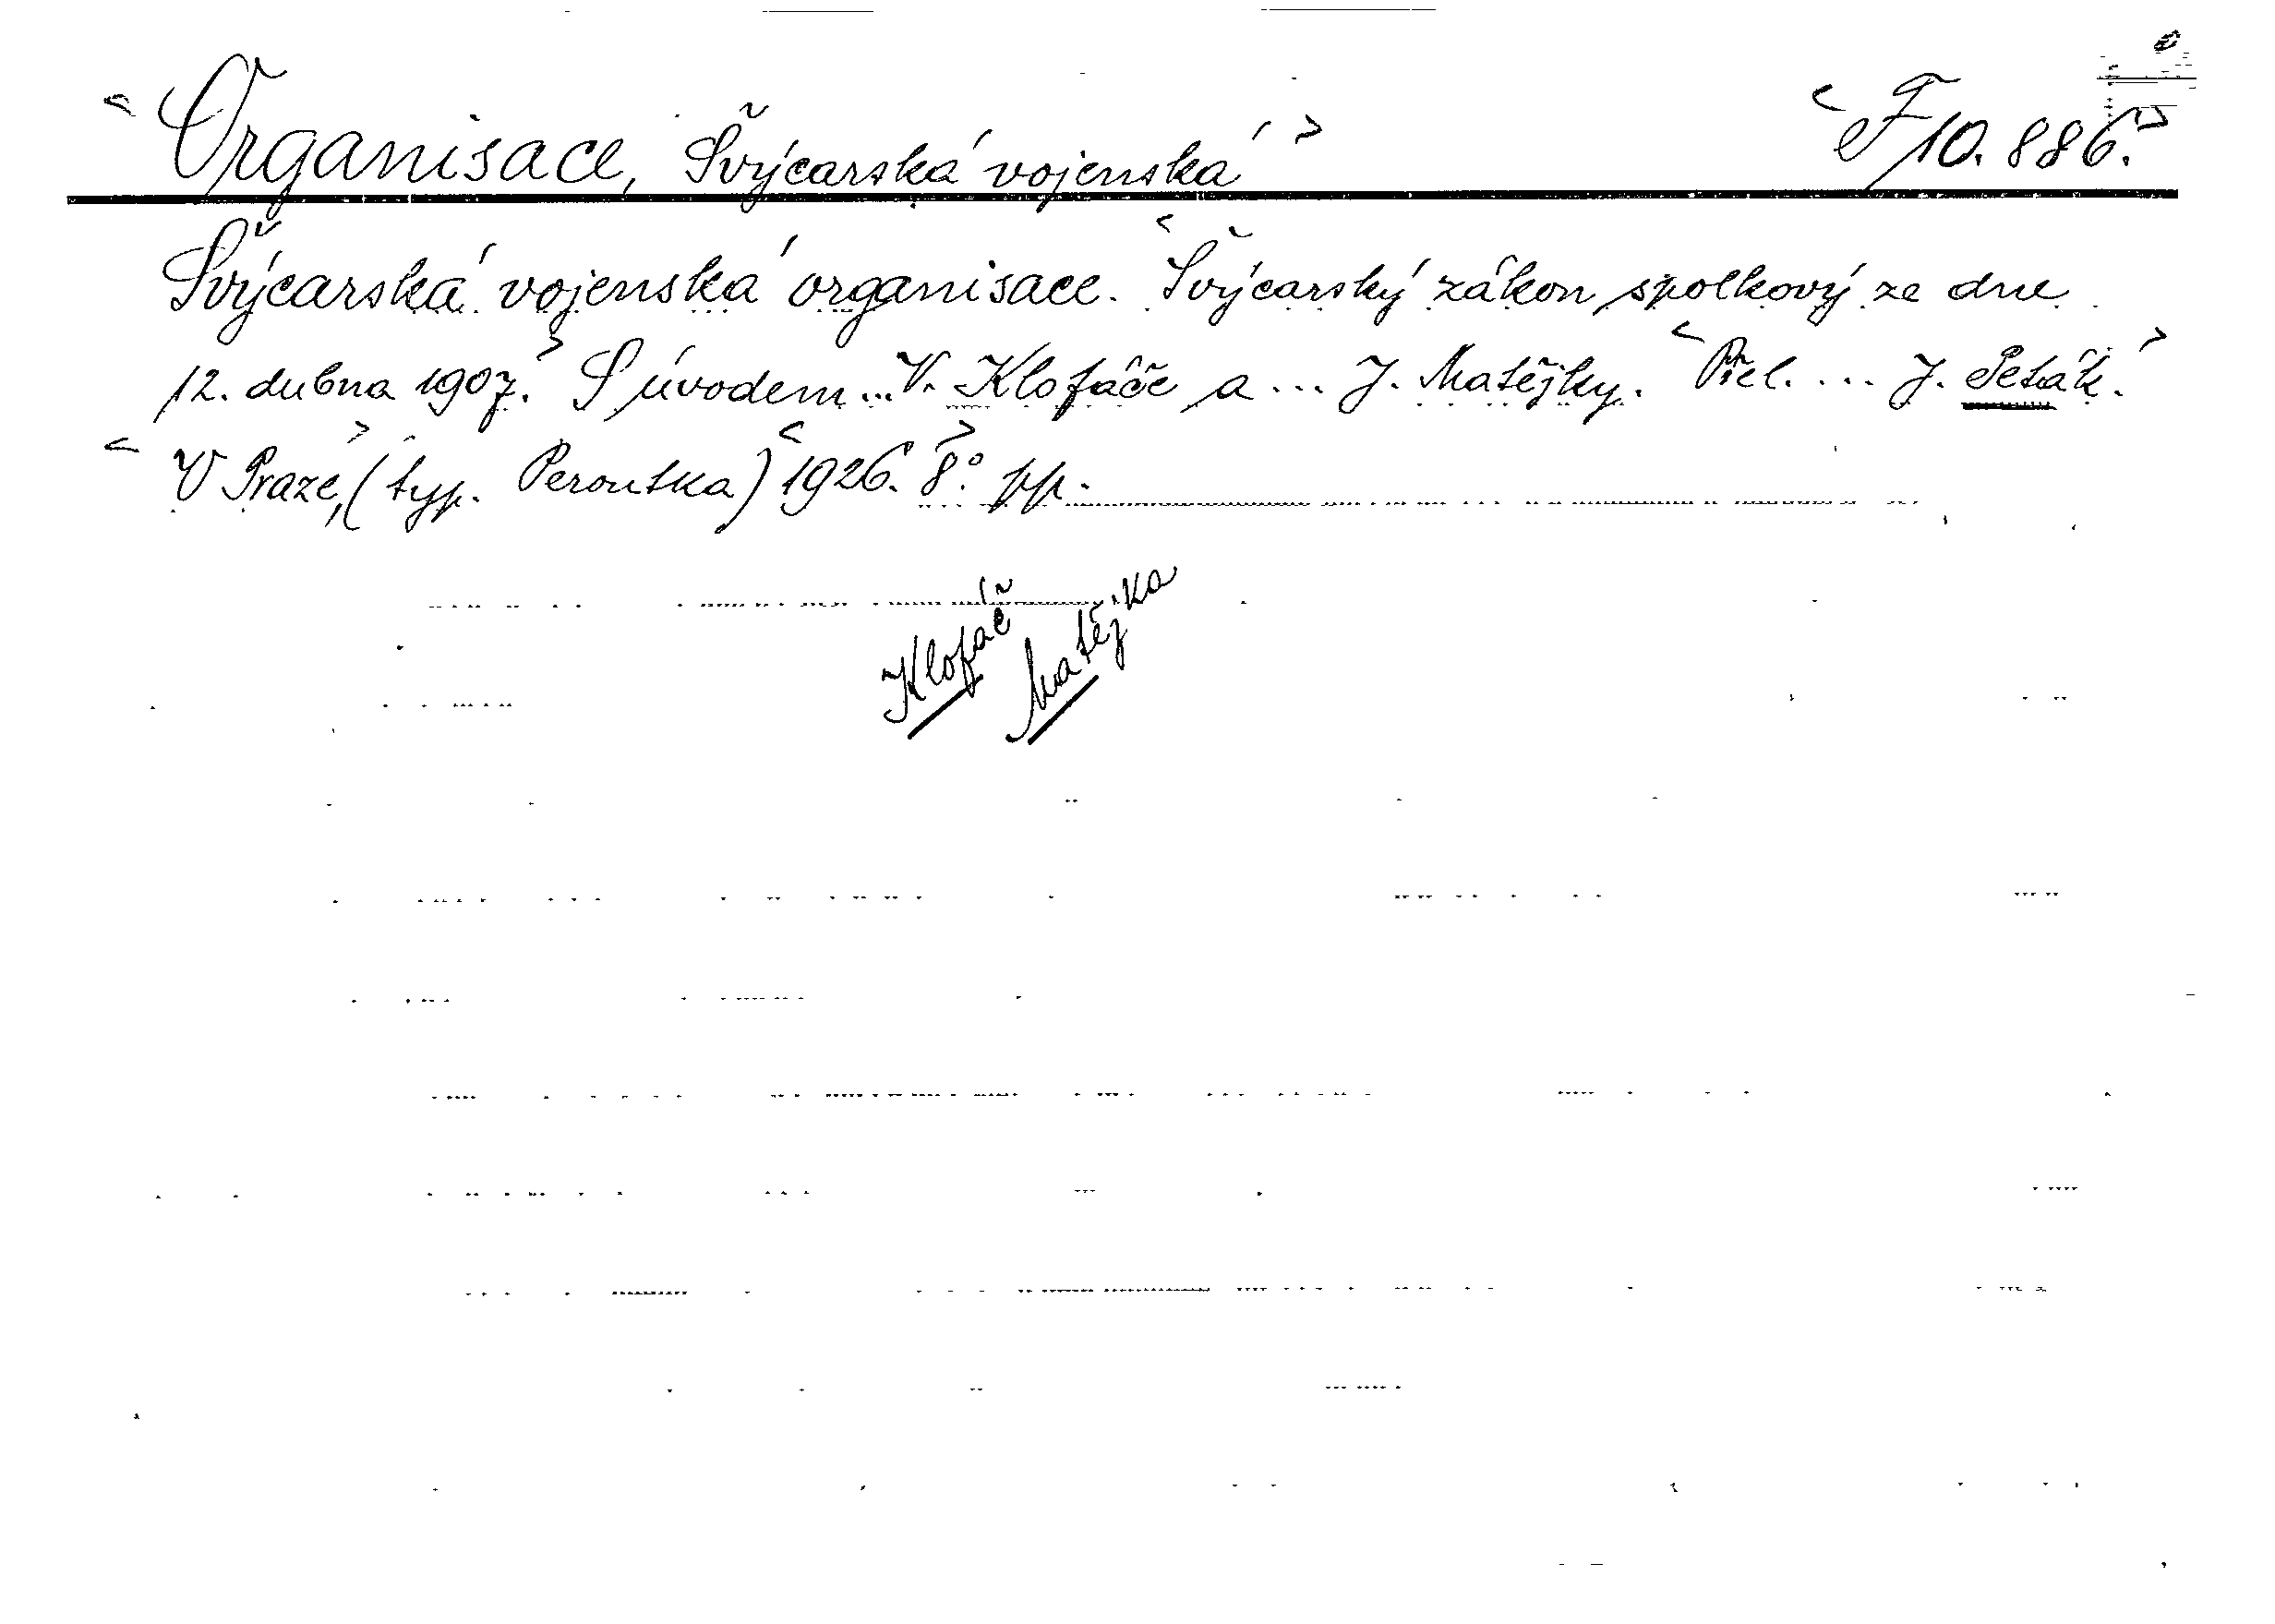 <Organisace, Švýcarská vojenská> <F 10.886.>
Švýcarská vojenská organisace. <Švýcarský zákon spolkový ze dne
12. dubna 1907.> S úvodem ... V. Klofáče a ... J. Matějky. <Přel. ... J. Peták.>
<V Praze,> (typ. Peroutka) <1926.> 8° pp.
Klofáč
Matějka